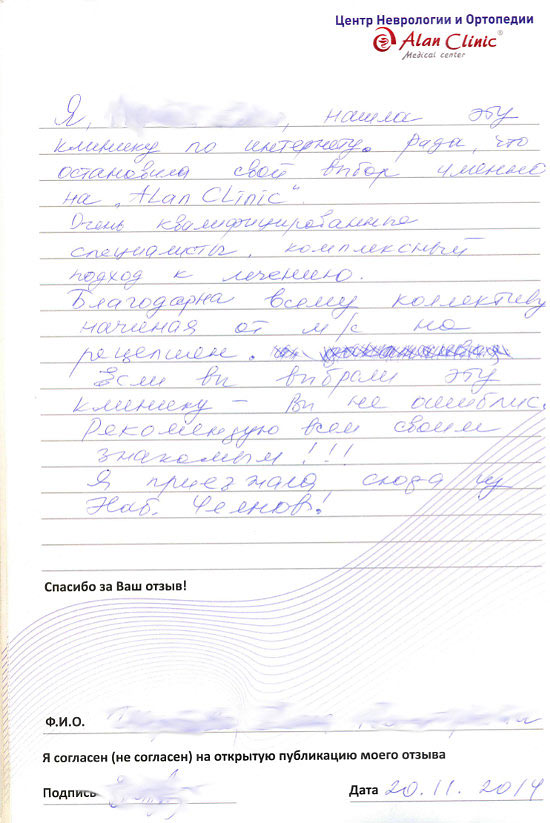 Центр Неврологии и Ортопедии
Alan Clinic®
Medical center
Я, нашла эту
клинику по интернету. Рада, что
остановила свой выбор именно
на „Alan Clinic“.
Очень квалифицированные
специалисты, комплексный
подход к лечению.
Благодарна всему коллективу
начиная от м/с на
рецепшен.
Если вы выбрали эту
клинику – Вы не ошиблись.
Рекомендую всем своим
знакомым!!!
Я приезжала сюда из
Наб. Челнов!
Спасибо за Ваш отзыв!
Ф.И.О.
Я согласен (не согласен) на открытую публикацию моего отзыва
Подпись
Дата 20.11.2014